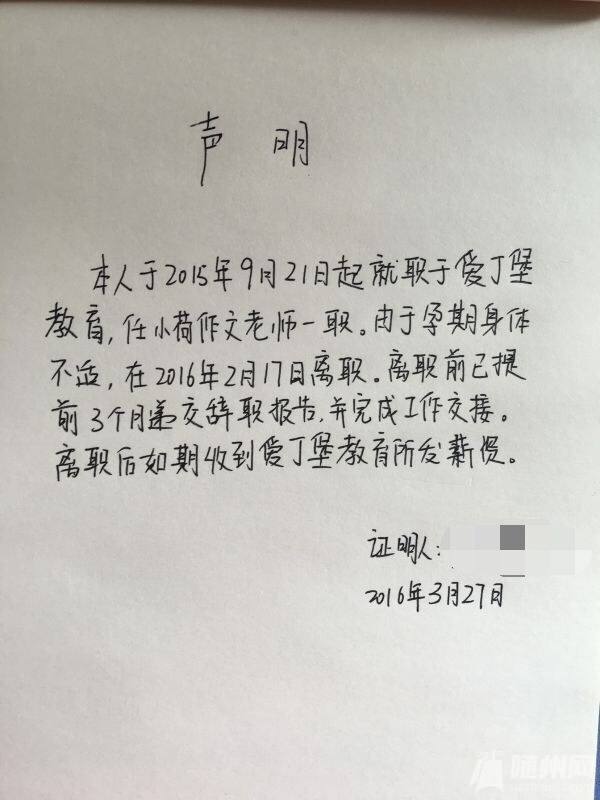 声 明
本人于2015年9月21日起就职于爱丁堡
教育，任小荷作文老师一职。由于孕期身体
不适，在2016年2月17日离职。离职前已提
前3个月递交辞职报告，并完成工作交接。
离职后如期收到爱丁堡教育所发薪资。
证明人：
2016年3月27日
随州网